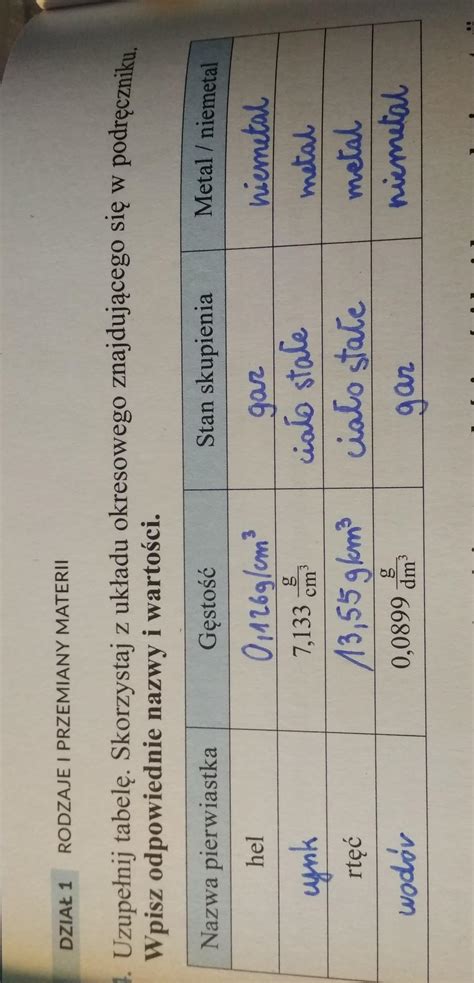 DZIAŁ 1 RODZAJE I PRZEMIANY MATERII
4. Uzupełnij tabelę. Skorzystaj z układu okresowego znajdującego się w podręczniku.
Wpisz odpowiednie nazwy i wartości.
Nazwa pierwiastka Gęstość Stan skupienia Metal / niemetal
hel 0,126g/cm³ gaz niemetal
cynk 7,133 g/cm³ ciało stałe metal
rtęć 13,55g/cm³ ciało stałe metal
wodór 0,0899 g/dm³ gaz niemetal